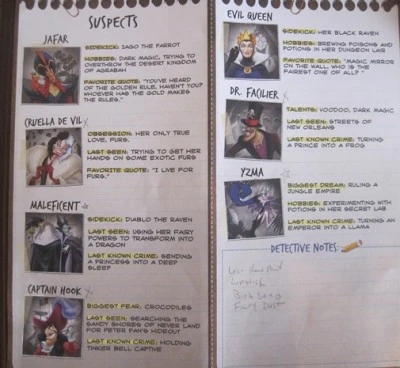 SUSPECTS
JAFAR
SIDEKICK: IAGO THE PARROT
HOBBIES: DARK MAGIC, TRYING TO
OVERTHROW THE DESERT KINGDOM
OF AGRABAH
FAVORITE QUOTE: "YOU'VE HEARD
OF THE GOLDEN RULE, HAVEN'T YOU?
WHOEVER HAS THE GOLD MAKES
THE RULES."
CRUELLA DE VIL X
OBSESSION: HER ONLY TRUE
LOVE, FURS.
LAST SEEN: TRYING TO GET HER
HANDS ON SOME EXOTIC FURS
FAVORITE QUOTE: "I LIVE FOR
FURS."
MALEFICENT
SIDEKICK: DIABLO THE RAVEN
LAST SEEN: USING HER FAIRY
POWERS TO TRANSFORM INTO
A DRAGON
LAST KNOWN CRIME: SENDING
A PRINCESS INTO A DEEP
SLEEP
CAPTAIN HOOK X
BIGGEST FEAR: CROCODILES
LAST SEEN: SEARCHING THE
SANDY SHORES OF NEVER LAND
FOR PETER PAN'S HIDEOUT
LAST KNOWN CRIME: HOLDING
TINKER BELL CAPTIVE
EVIL QUEEN
SIDEKICK: HER BLACK RAVEN
HOBBIES: BREWING POISONS AND
POTIONS IN HER DUNGEON LAB
FAVORITE QUOTE: "MAGIC MIRROR
ON THE WALL, WHO IS THE
FAIREST ONE OF ALL?"
DR. FACILIER X
TALENTS: VOODOO, DARK MAGIC
LAST SEEN: STREETS OF
NEW ORLEANS
LAST KNOWN CRIME: TURNING
A PRINCE INTO A FROG
YZMA
BIGGEST DREAM: RULING A
JUNGLE EMPIRE
HOBBIES: EXPERIMENTING WITH
POTIONS IN HER SECRET LAB
LAST KNOWN CRIME: TURNING AN
EMPEROR INTO A LLAMA
DETECTIVE NOTES:
Lipstick
Fairy Dust